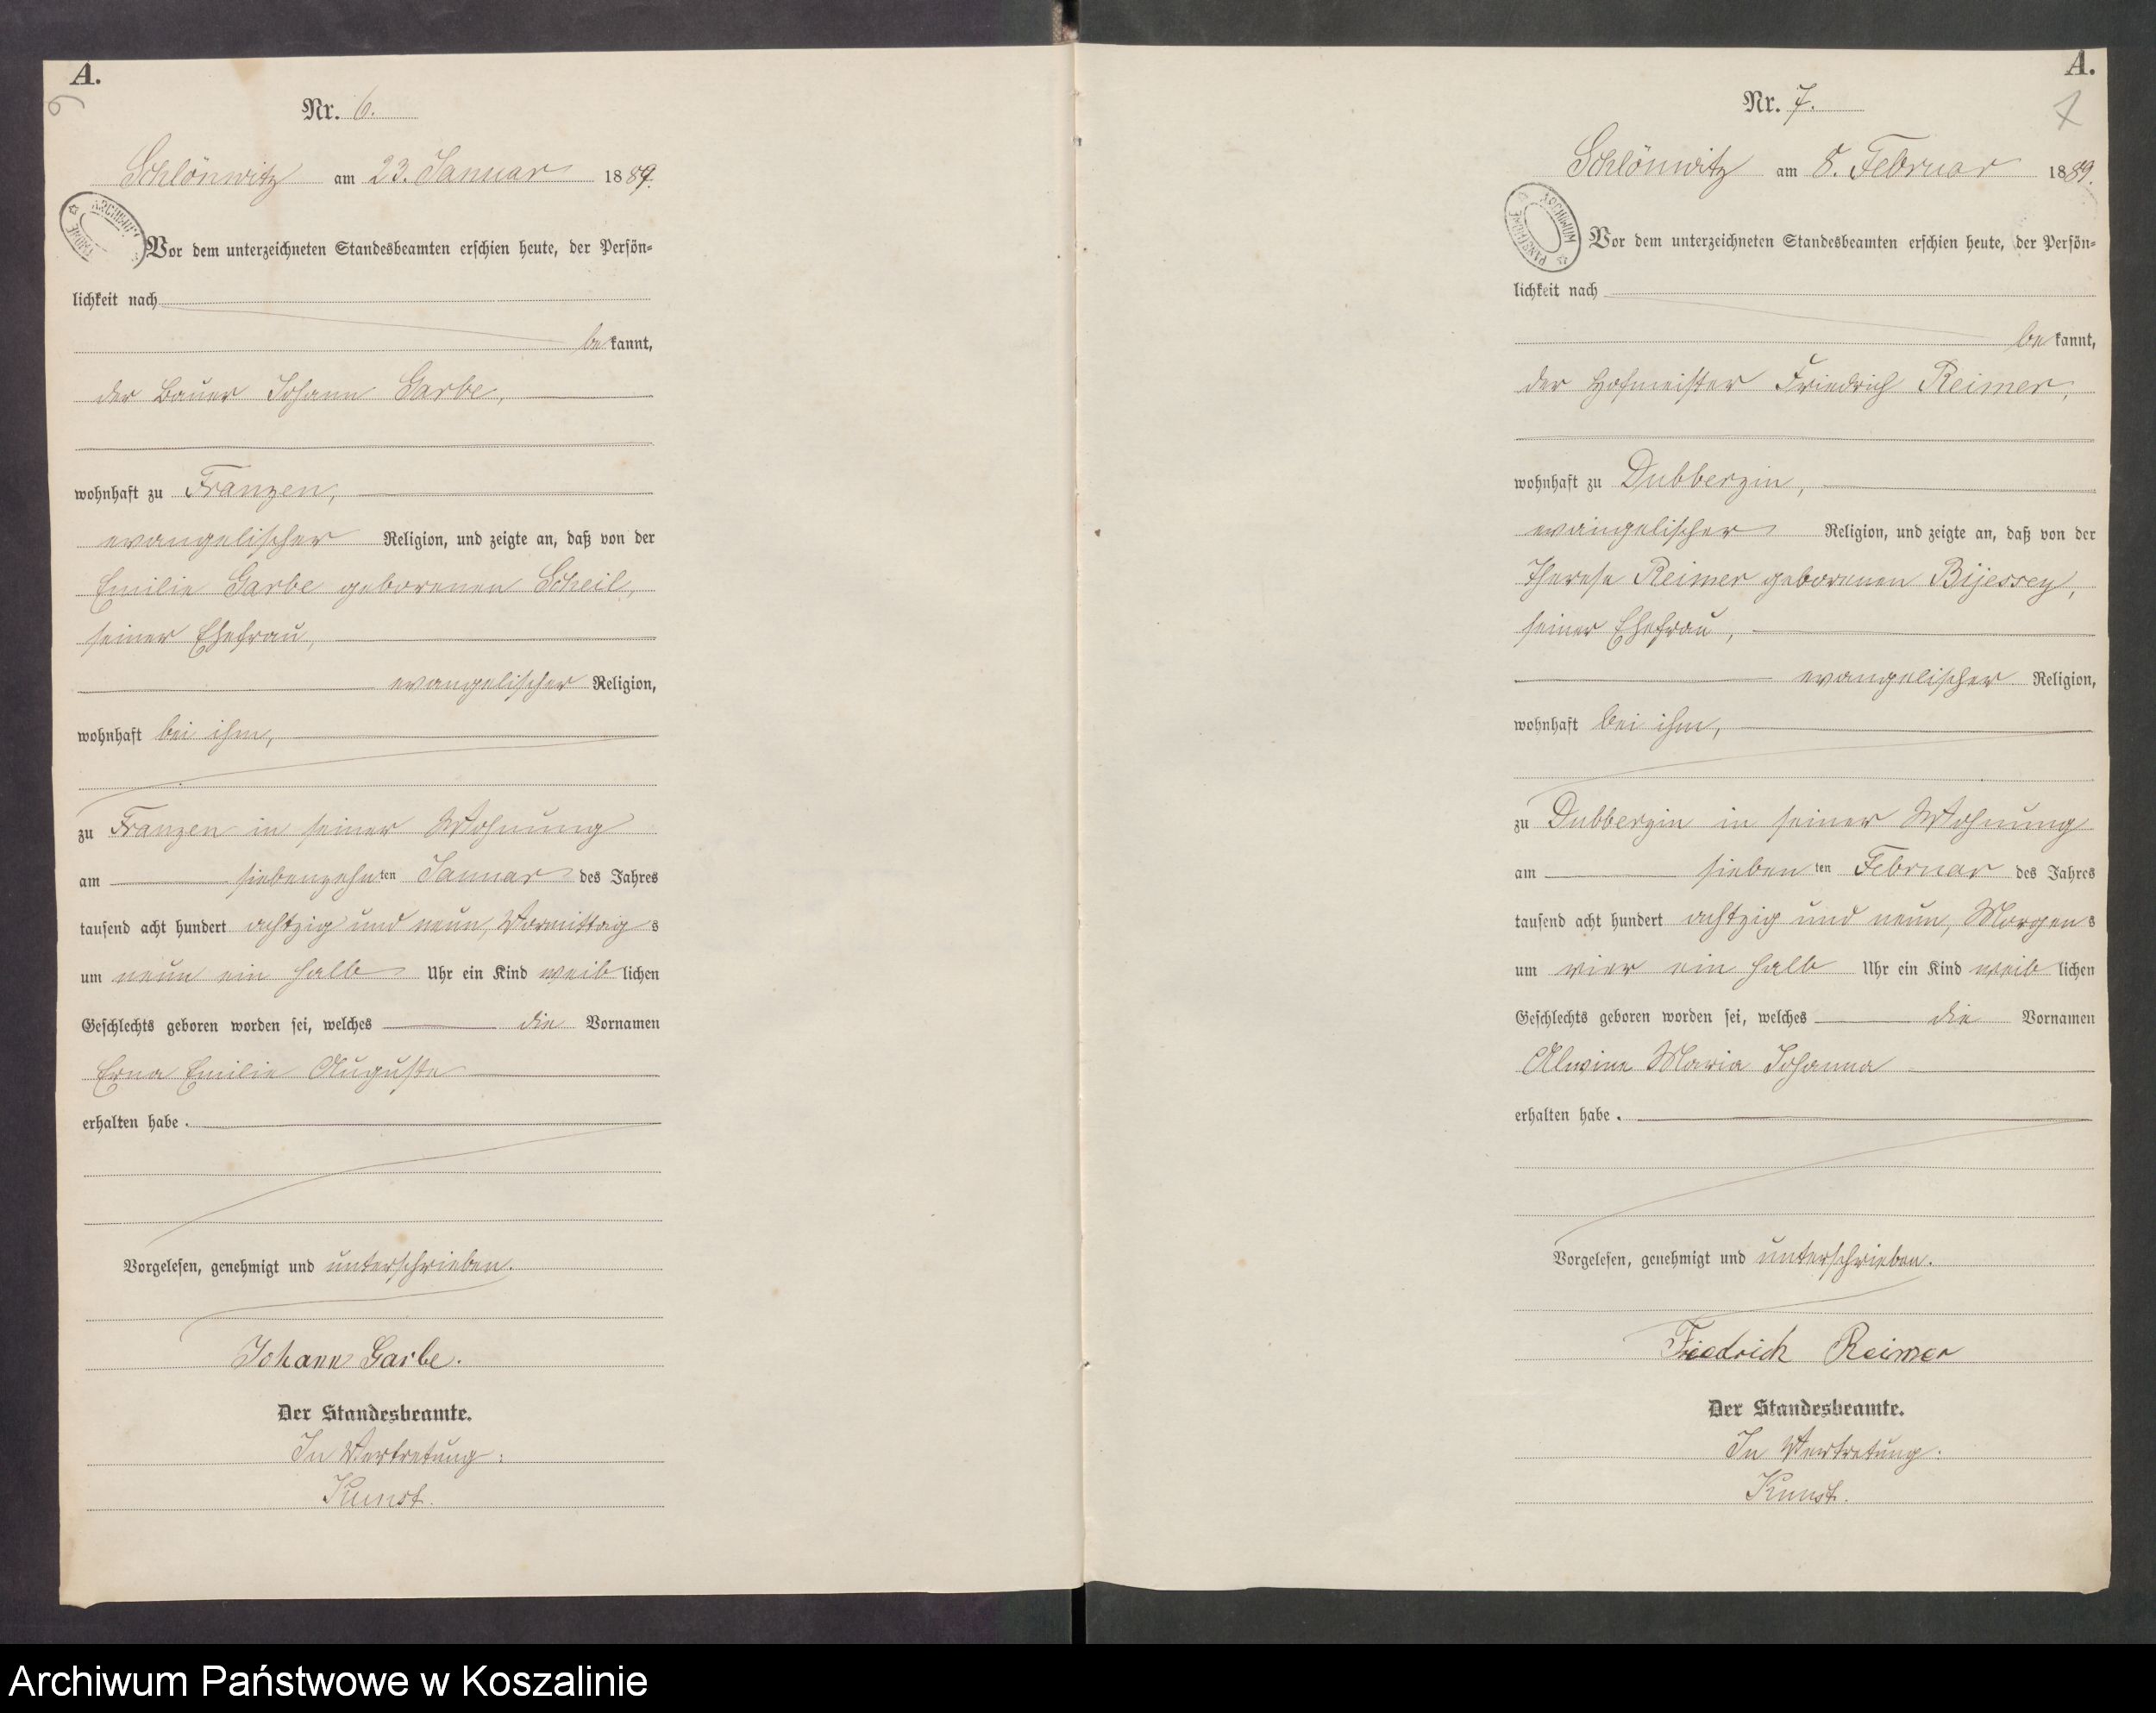 A.
6
Nr. 6.
Schlönwitz am 23. Januar 1889.
Vor dem unterzeichneten Standesbeamten erschien heute, der Persön-
lichkeit nach
bekannt,
der Bauer Johann Garbe,
wohnhaft zu Franzen,
evangelischer Religion, und zeigte an, daß von der
Emilie Garbe geborenen Scheil,
seiner Ehefrau,
evangelischer Religion,
wohnhaft bei ihm,
zu Franzen in seiner Wohnung
am siebenzehnten Januar des Jahres
tausend acht hundert achtzig und neun, Vormittags
um neun ein halb Uhr ein Kind weiblichen
Geschlechts geboren worden sei, welches die Vornamen
Erna Emilie Auguste
erhalten habe.
Vorgelesen, genehmigt und unterschrieben.
Johann Garbe.
Der Standesbeamte.
In Vertretung:
Kunst.
A.
7
Nr. 7.
Schlönwitz am 8. Februar 1889.
ARCHIWUM PAŃSTWOWE
Vor dem unterzeichneten Standesbeamten erschien heute, der Persön-
lichkeit nach
bekannt,
der Hofmeister Friedrich Reimer,
wohnhaft zu Dubberzin,
evangelischer Religion, und zeigte an, daß von der
Therese Reimer geborenen Bijessey,
seiner Ehefrau,
evangelischer Religion,
wohnhaft bei ihm,
zu Dubberzin in seiner Wohnung
am siebenten Februar des Jahres
tausend acht hundert achtzig und neun, Morgens
um vier ein halb Uhr ein Kind weiblichen
Geschlechts geboren worden sei, welches die Vornamen
Alwine Maria Johanna
erhalten habe.
Vorgelesen, genehmigt und unterschrieben.
Friedrich Reimer
Der Standesbeamte.
In Vertretung:
Kunst.
Archiwum Państwowe w Koszalinie